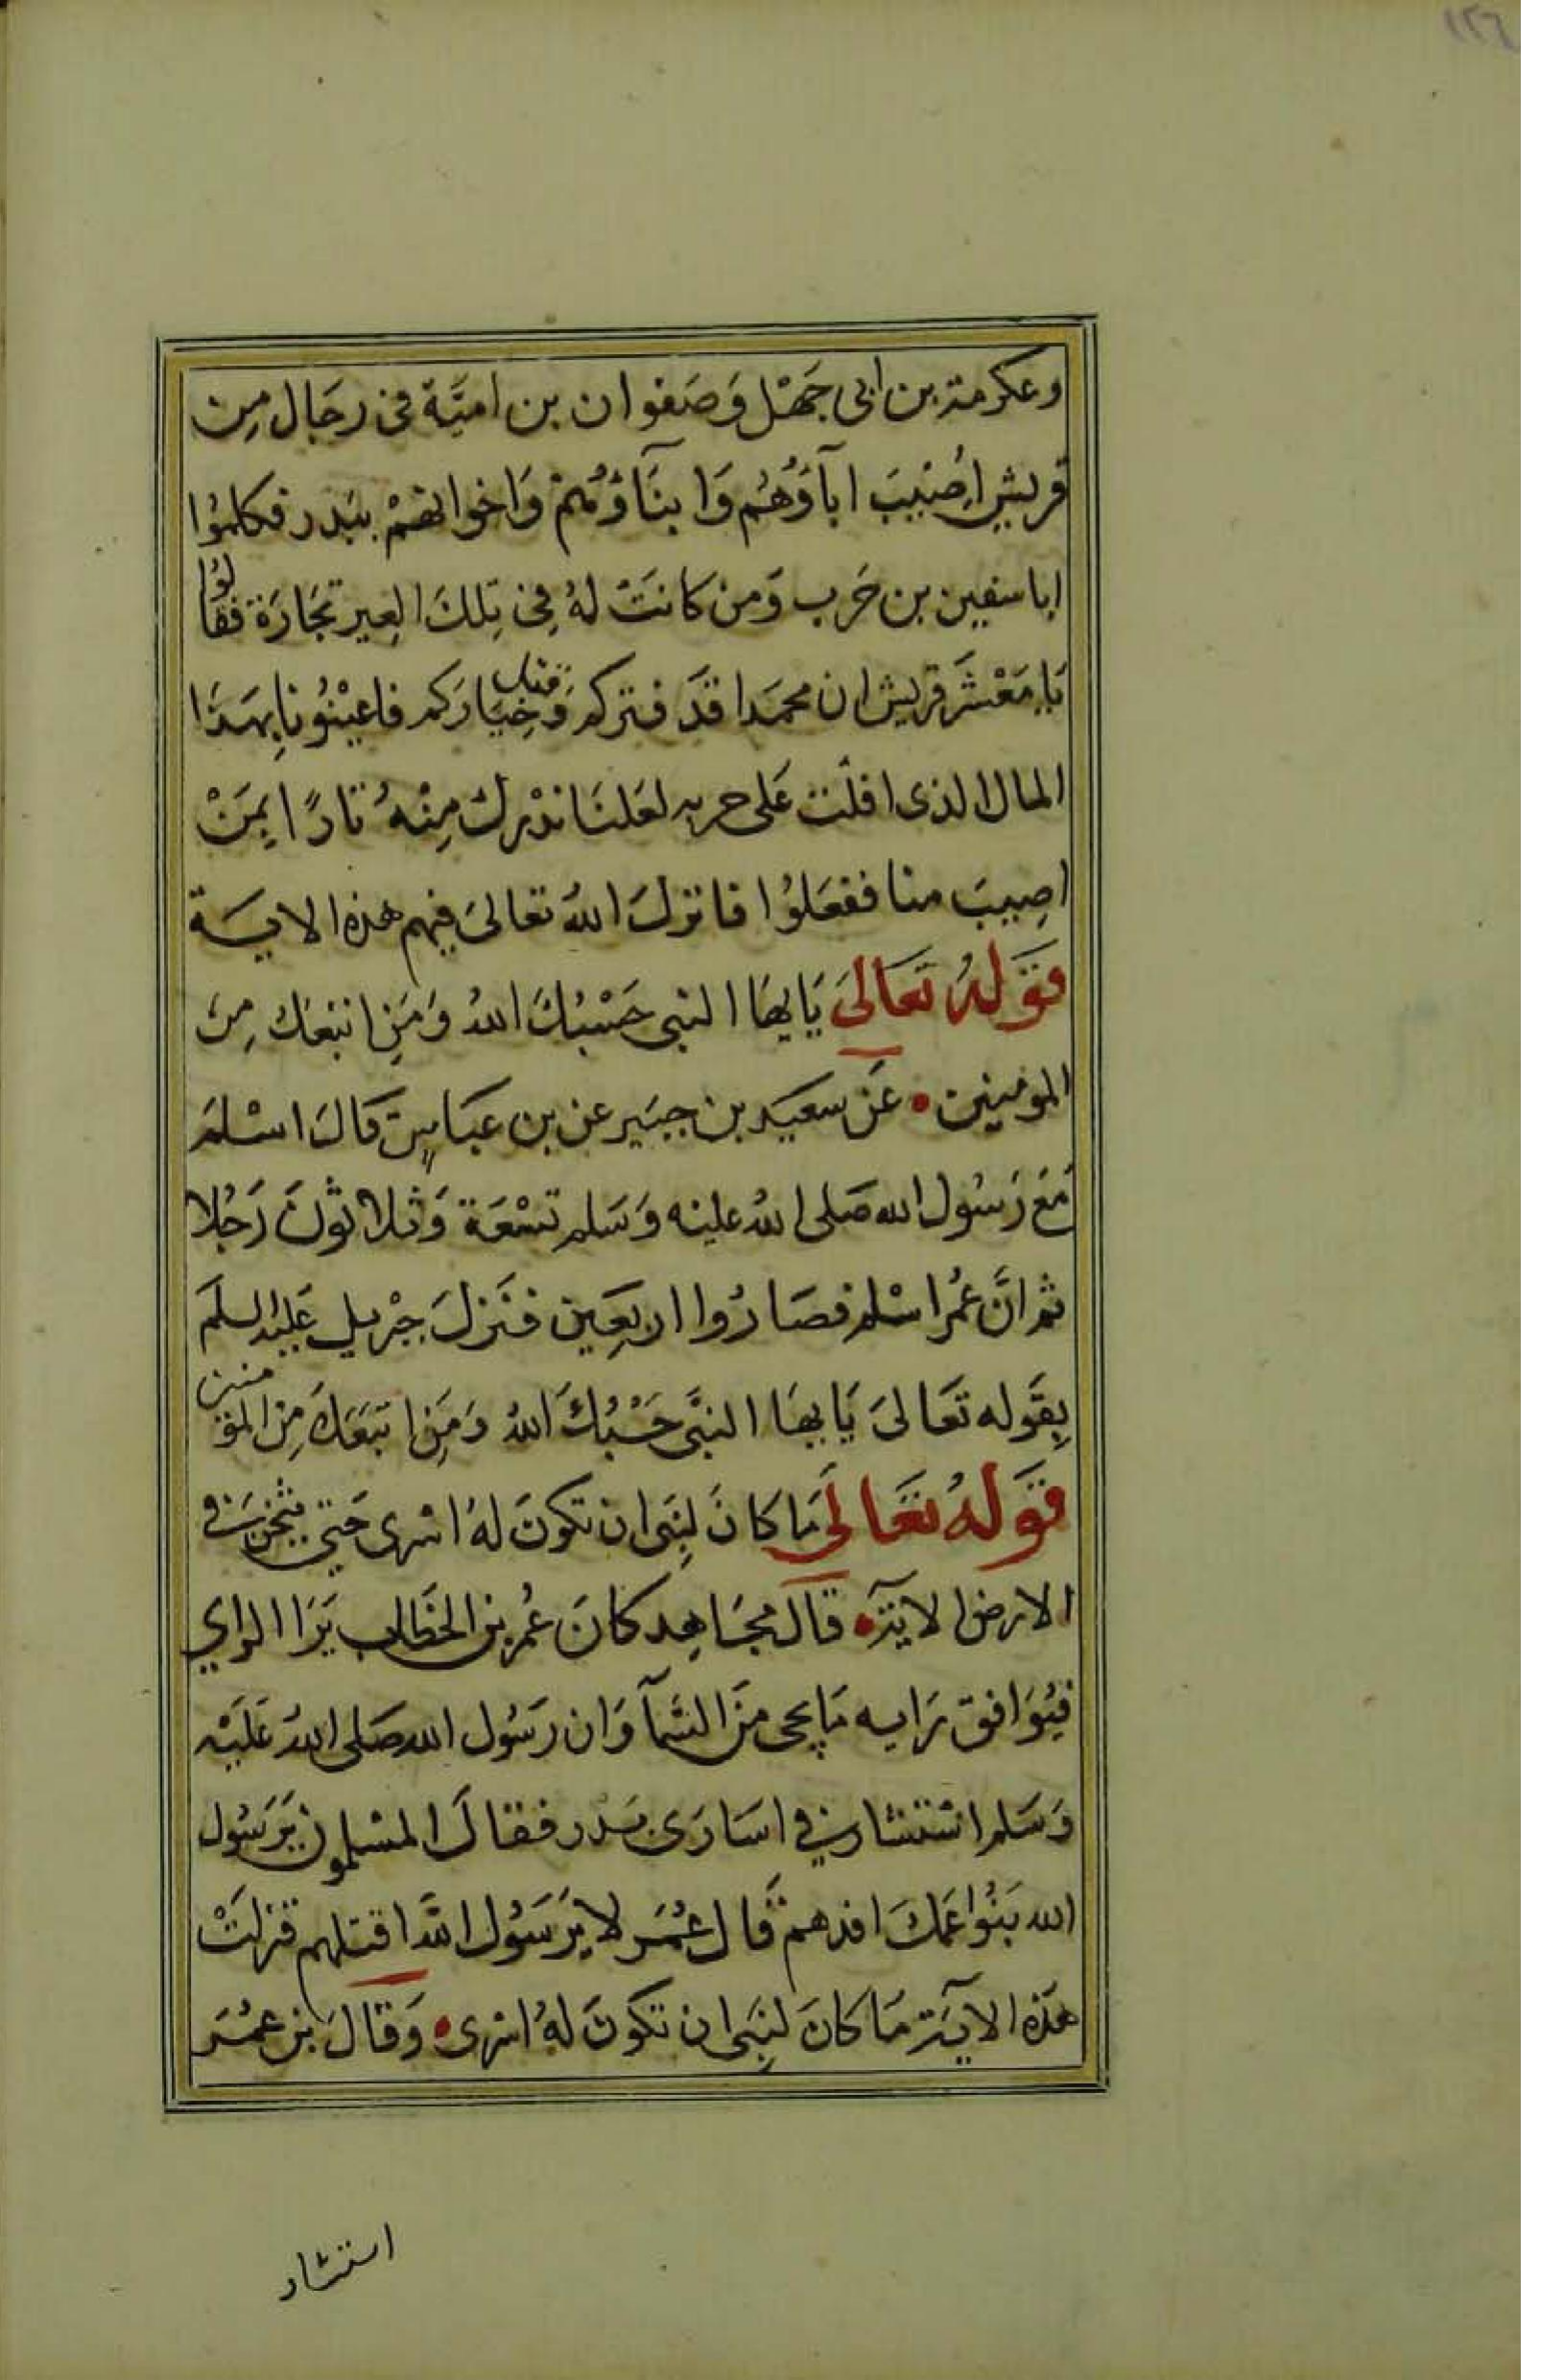 ١٢٦
وعكرمة بن ابى جَهْل وَصَفوان بن امَيَّة فى رجَال مِن
قريش اُصِيبَ اباَؤُهُم وَابنَآؤُهُمْ وَاخوانهمْ ببَدر فكلمُوا
اباسفين بن حَرب وَمن كانَتْ لهُ فِى تِلكَ العِير تجَارَة فقالُوا
يَا مَعْشَر قريش ان محمَدا قَد وَتركم وَقتل خِيَاركم فاعيْنُونا بِهذَا
المال الذى افلَت عَلى حربه لعَلنَا ندْرك مِنْهُ ثارًا بِمَنْ
اصِيبَ منا ففعَلوُا فانزلَ اللهُ تعَالىَ فِيهم هذه الايَة
قَولهُ تَعَالىَ يَايهَا النبى حَسْبُكَ اللهُ وَمَنِ اتبعَك مِن
المومِنين • عَن سعَيد بن جبَير عن بن عبَاسٍ قَالَ اسْلمَ
مَعَ رَسُول الله صَلى اللهُ عليْه وَسَلم تسْعَة وَثلاثونَ رَجُلا
ثم انَّ عُمر اسْلم فصَارُوا اربَعِين فنَزلَ جِبْريل عَليْه السلَم
بِقَوله تَعَالىَ يَايهَا النبَّى حَسْبُكَ اللهُ وَمَنِ اتبَعَكَ مِنَ المؤمنين
قَولهُ تعَالىَ مَا كانَ لِنبَى ان تكونَ لهُ اسْرى حَتى يثخنَ فى
الارض الايَة • قال مجَاهِد كانَ عُمر بن الخطَاب يَرَا الراي
فيُوَافق رَايه مَا يجى مِنَ السَّمَآ وَان رَسُول الله صَلى اللهُ عَليْه
وَسَلم اسْتشار فى اسَارَى بَدر فقالَ المسْلمون يَرَسُول
الله بَنُوا عَمكَ افدهمْ قَال عُمَر لا يَرَسُول اللَّه اقتلهم فنزلتْ
هَذه الايَة مَا كانَ لنِبَى ان تكونَ لهُ اسْرى • وَقالَ بن عمُرَ
استشار